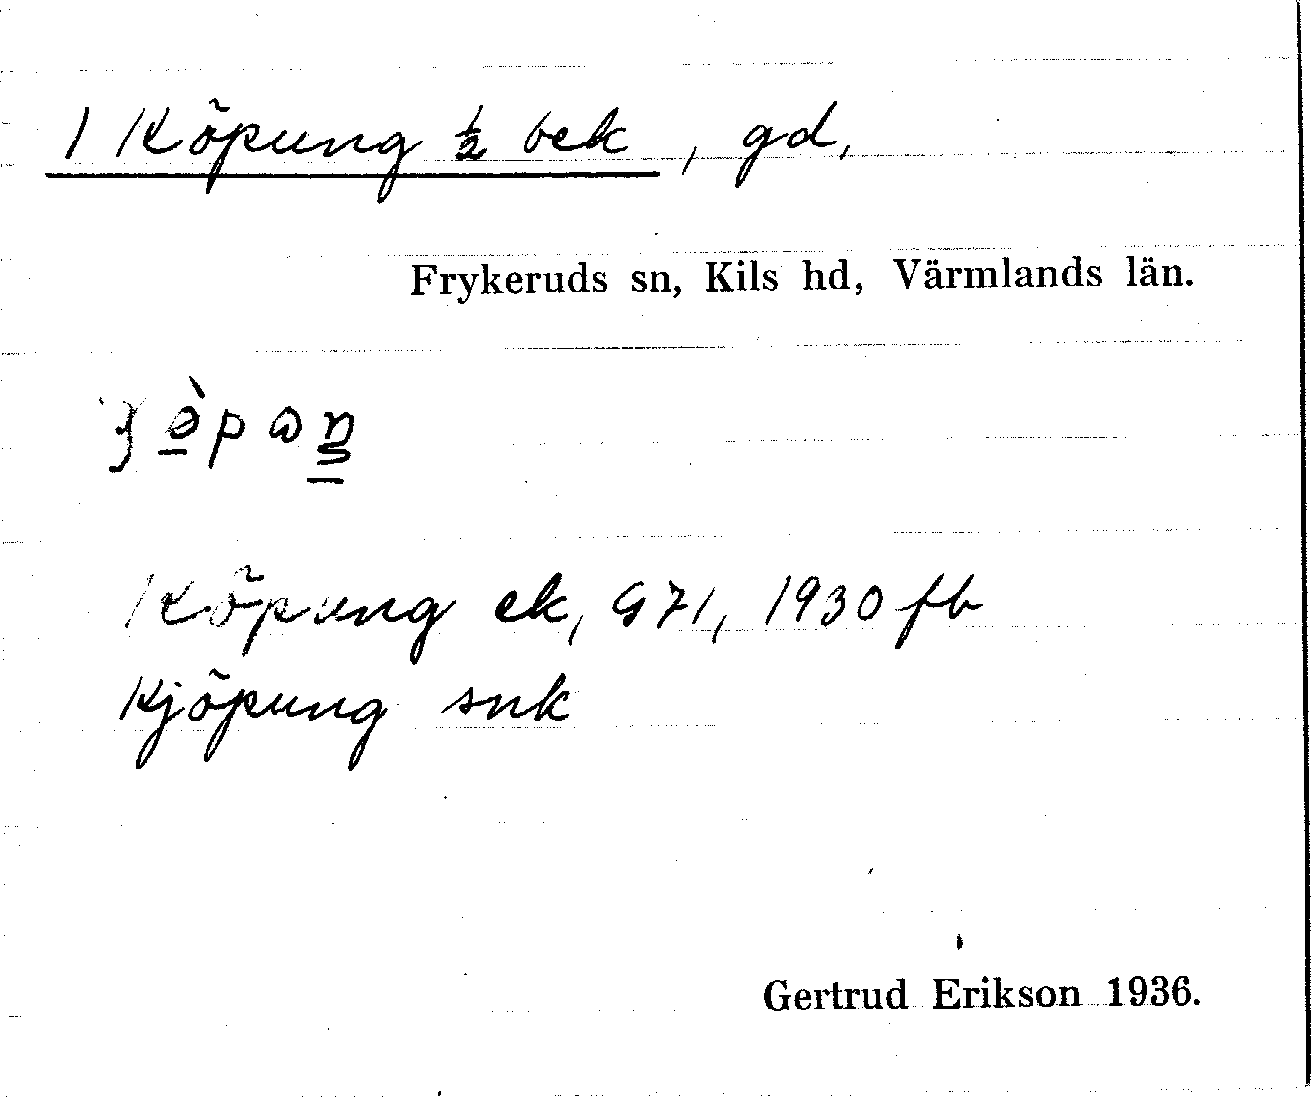 1 Köpung ½ bek, gd,
Frykeruds sn, Kils hd, Värmlands län.
Köpung ek, G71, 1930 fb
Kjöpung snk
Gertrud Erikson 1936.